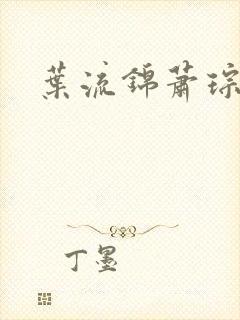 葉流錦蕭琮
丁墨